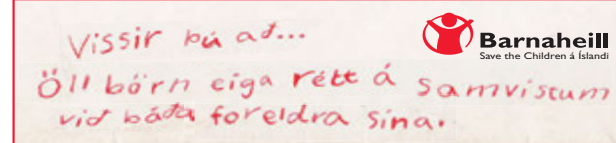 Vissir þú að...
Barnaheill
Save the Children á Íslandi
Öll börn eiga rétt á samvistum
við báða foreldra sína.